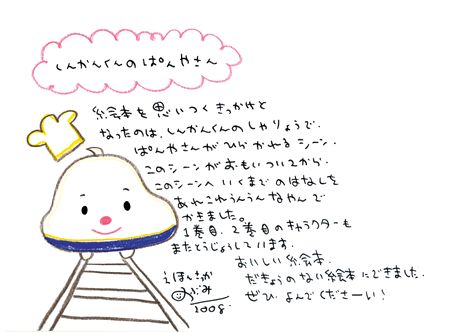 しんかんくんの ぱんやさん
絵本を思いつくきっかけと
なったのは、しんかんくんのしゃりょうで、
ぱんやさんがひらかれるシーン。
このシーンがおもいついてから、
このシーンへいくまでのはなしを
あれこれうんうんなやんで
かきました。
1巻目、2巻目のキャラクターも
またとうじょうしています。
おいしい絵本、
だきょうのない絵本にできました。
ぜひ よんでくださーい!
えほんさっか
のぶみ
2008.